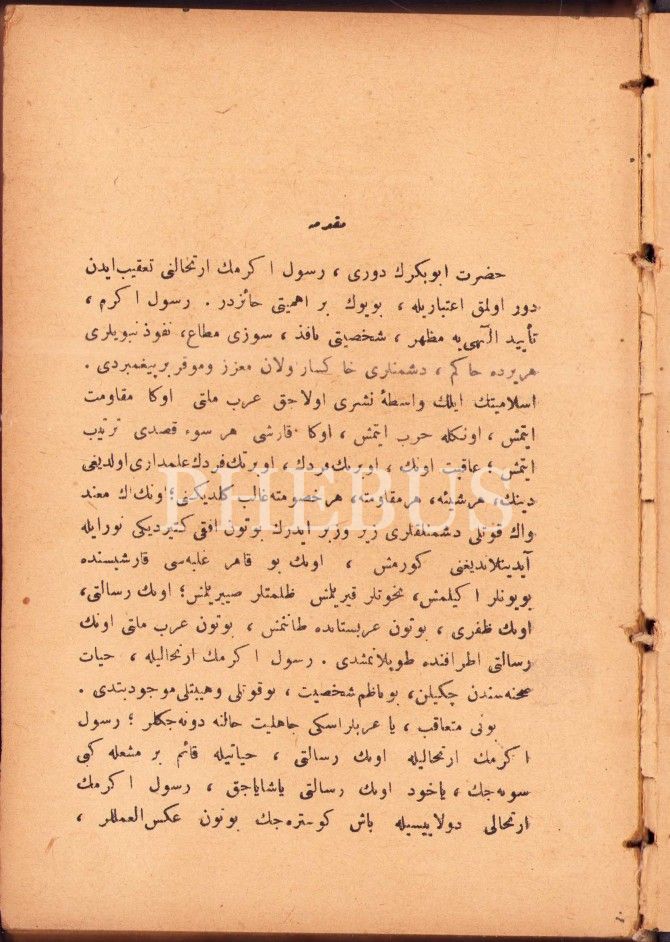 مقدمه
حضرت ابوبكرك دورى ، رسول اكرمك ارتحالنى تعقيب ايدن
دور اولمق اعتباريله ، بويوك بر اهميتى حائزدر . رسول اكرم ،
تأييد الٓهى‌يه مظهر ، شخصيتى نافذ ، سوزى مطاع ، نفوذ نبويلرى
هر يرده حاكم ، دشمنلرى خاكسار اولان معزز وموقر بر پيغمبردى .
اسلاميتك ايلك واسطهٔ نشرى اولاجق عرب ملتى اوكا مقاومت
ايتمش ، اونكله حرب ايتمش ، اوكا قارشى هر سوء قصدى ترتيب
ايتمش ؛ عاقبت اونك ، او بر تك فردك ، او بر تك فردك علمدارى اولديغى
دينك ، هر شيئه ، هر مقاومته ، هر خصومته غالب كلديكنى ؛ اونك اك معند
واك قوتلى دشمنلقلرى زير وزبر ايدرك بوتون افقى كتيرديكى نورايله
آيدينلاتديغنى كورمش ، اونك بو قاهر غلبه‌سى قارشيسنده
بويونلر اكيلمش ، نخوتلر قيريلمش ظلمتلر سيپريلمش ؛ اونك رسالتى ،
اونك ظفرى ، بوتون عربستانده طانتمش ، بوتون عرب ملتى اونك
رسالتى اطرافنده طوپلانمشدى . رسول اكرمك ارتحاليله ، حيات
صحنه‌سندن چكيلن ، بو ناظم شخصيت ، بو قوتلى وهيبتلى موجوديتدى .
بونى متعاقب ، يا عربلر اسكى جاهليت حالنه دونه‌جكلر ؛ رسول
اكرمك ارتحاليله اونك رسالتى ، حياتيله قائم بر مشعله كبى
سونه‌جك ، ياخود اونك رسالتى ياشاياجق ، رسول اكرمك
ارتحالى دولاييسيله باش كوستره‌جك بوتون عكس العمللر ،
PHEBUS